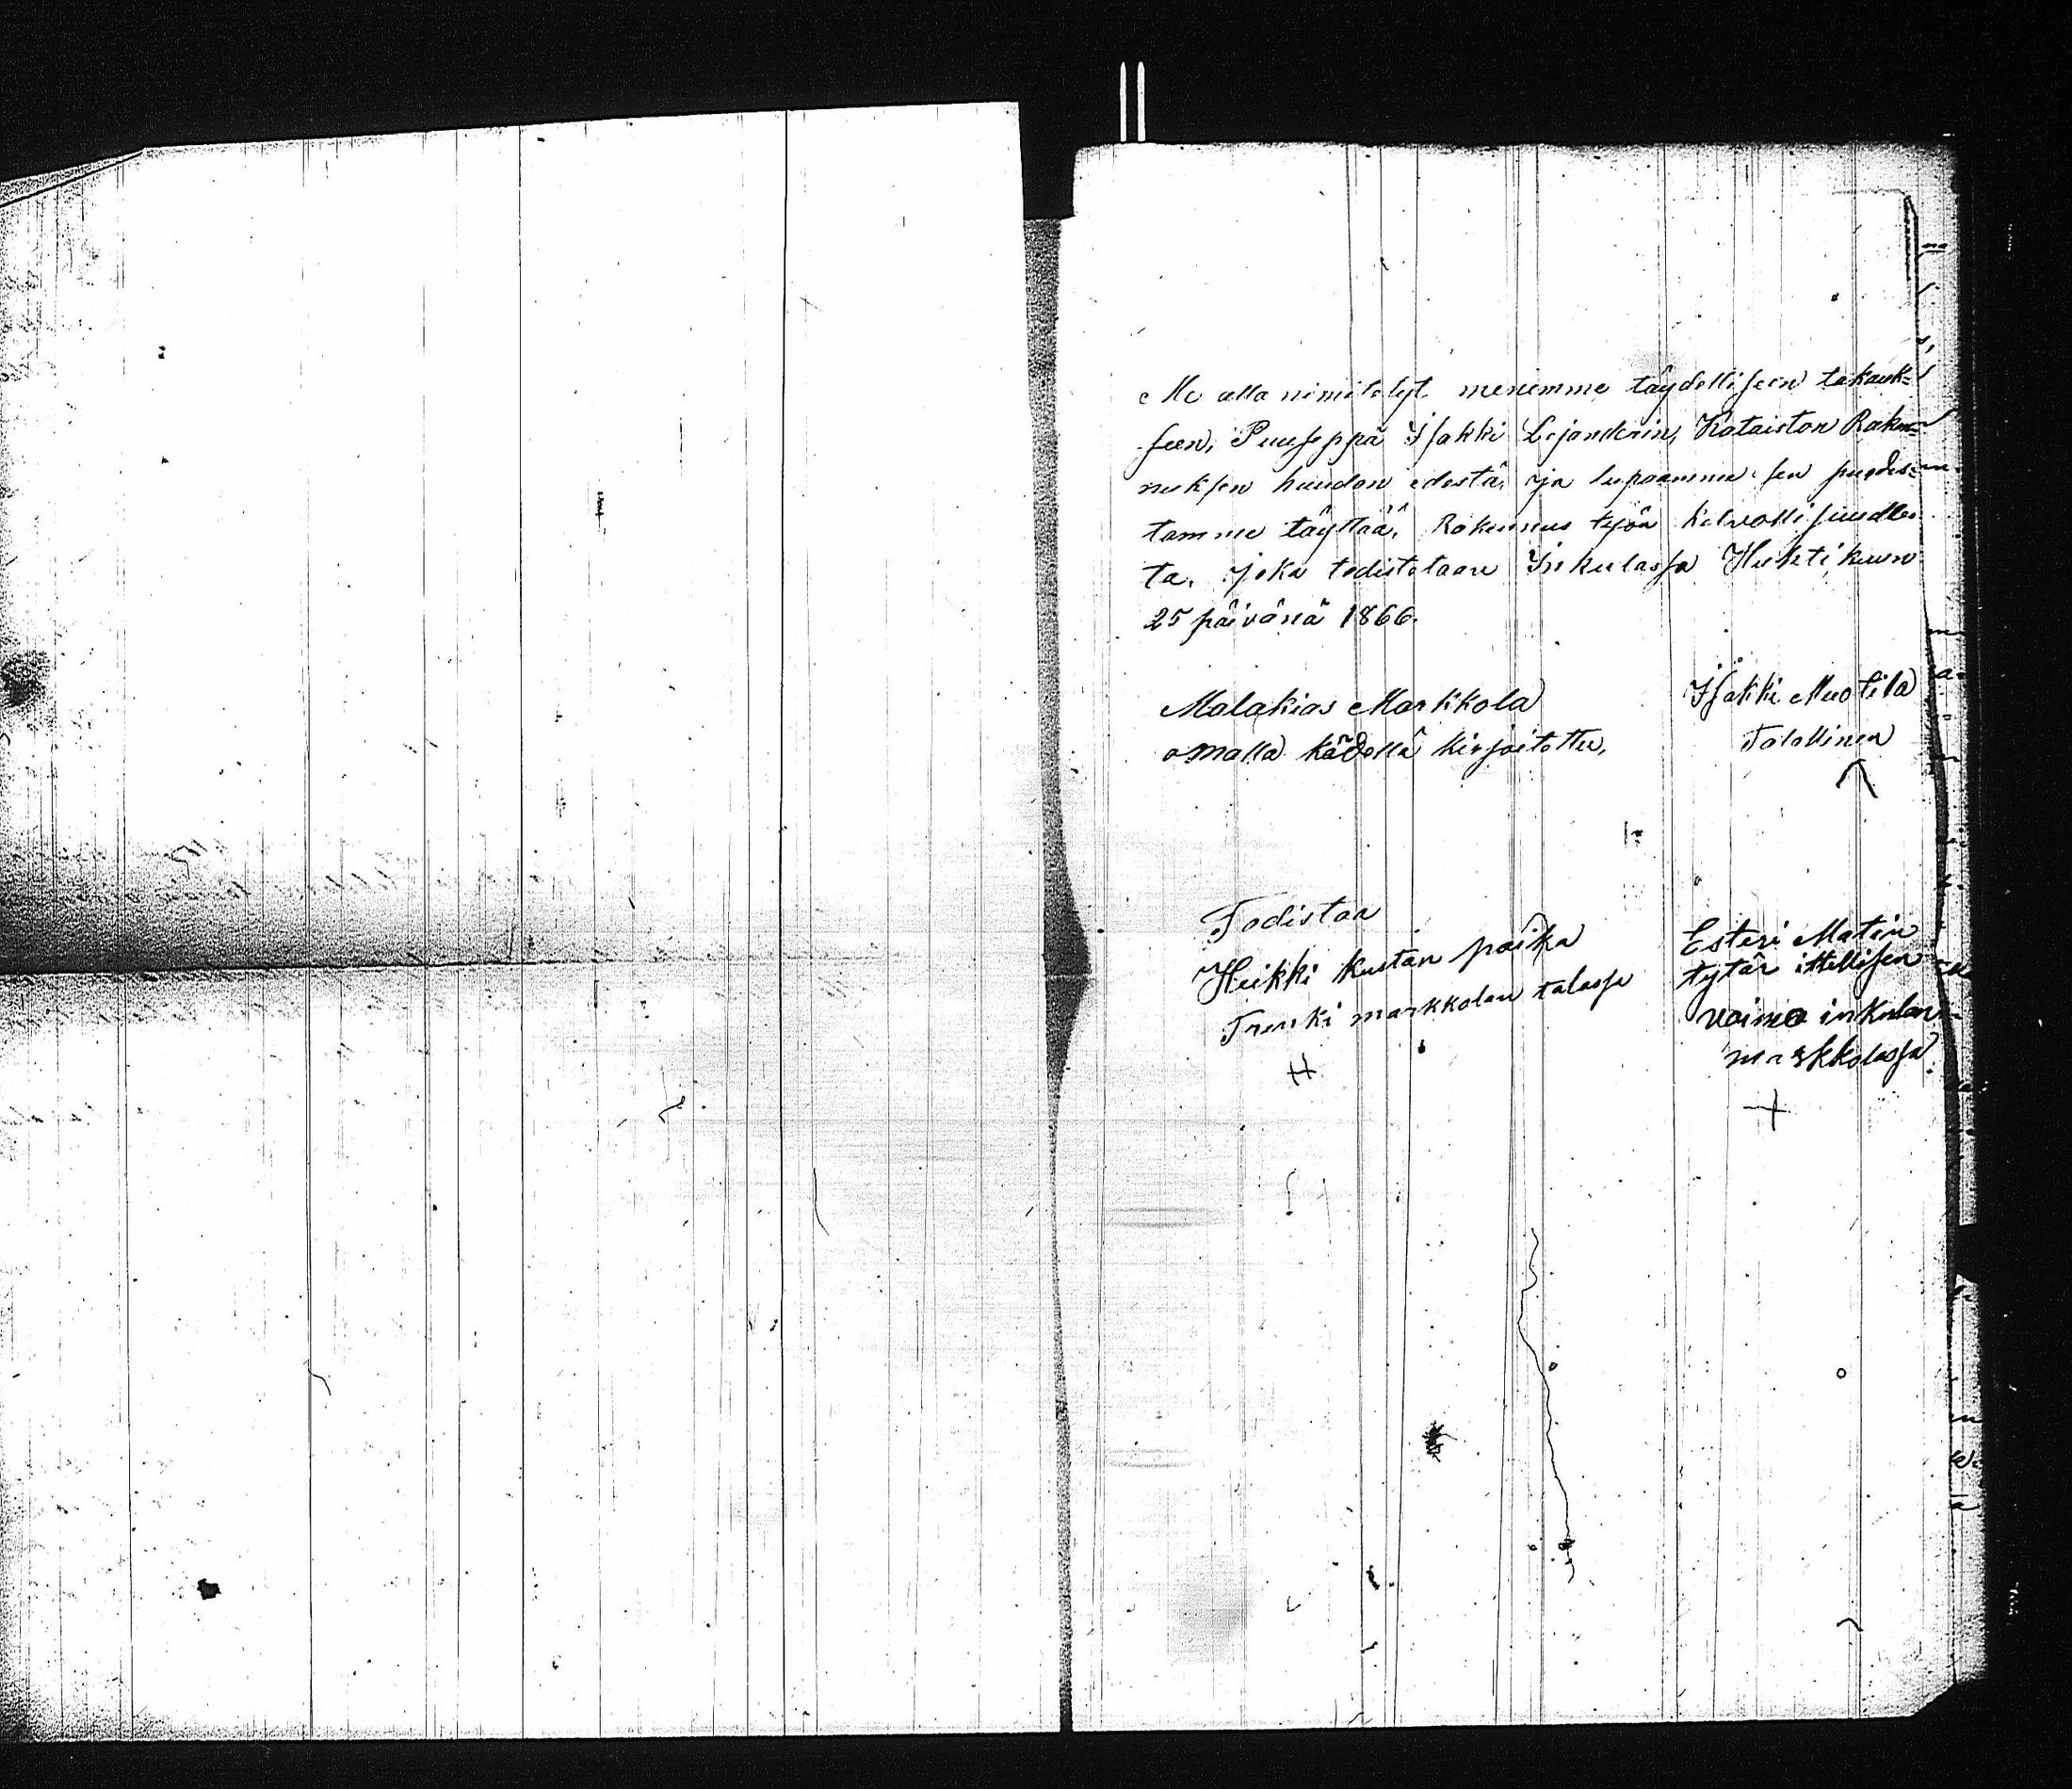 Me alla nimitetyt menemme täydelliseen takauk=
seen, Puuseppä Isakki Lejanderin, Kataiston Raken=
nuksen huudon edestä, ja lupaamme sen puodis=
tamme täyttää, Rakennus työn kelvollisuudes
ta, joka todistetaan Inkulassa Huhtikuun
25 päivänä 1866.
Malakias Markkola
omalla kädellä kirjoitettu,
Isakki Muotila
Talollinen
Todistaa
Heikki kustan poika
Trenki markkolan talossa
Esteri Matin
tytär ittellisen
vaimo inkulan
markkolassa